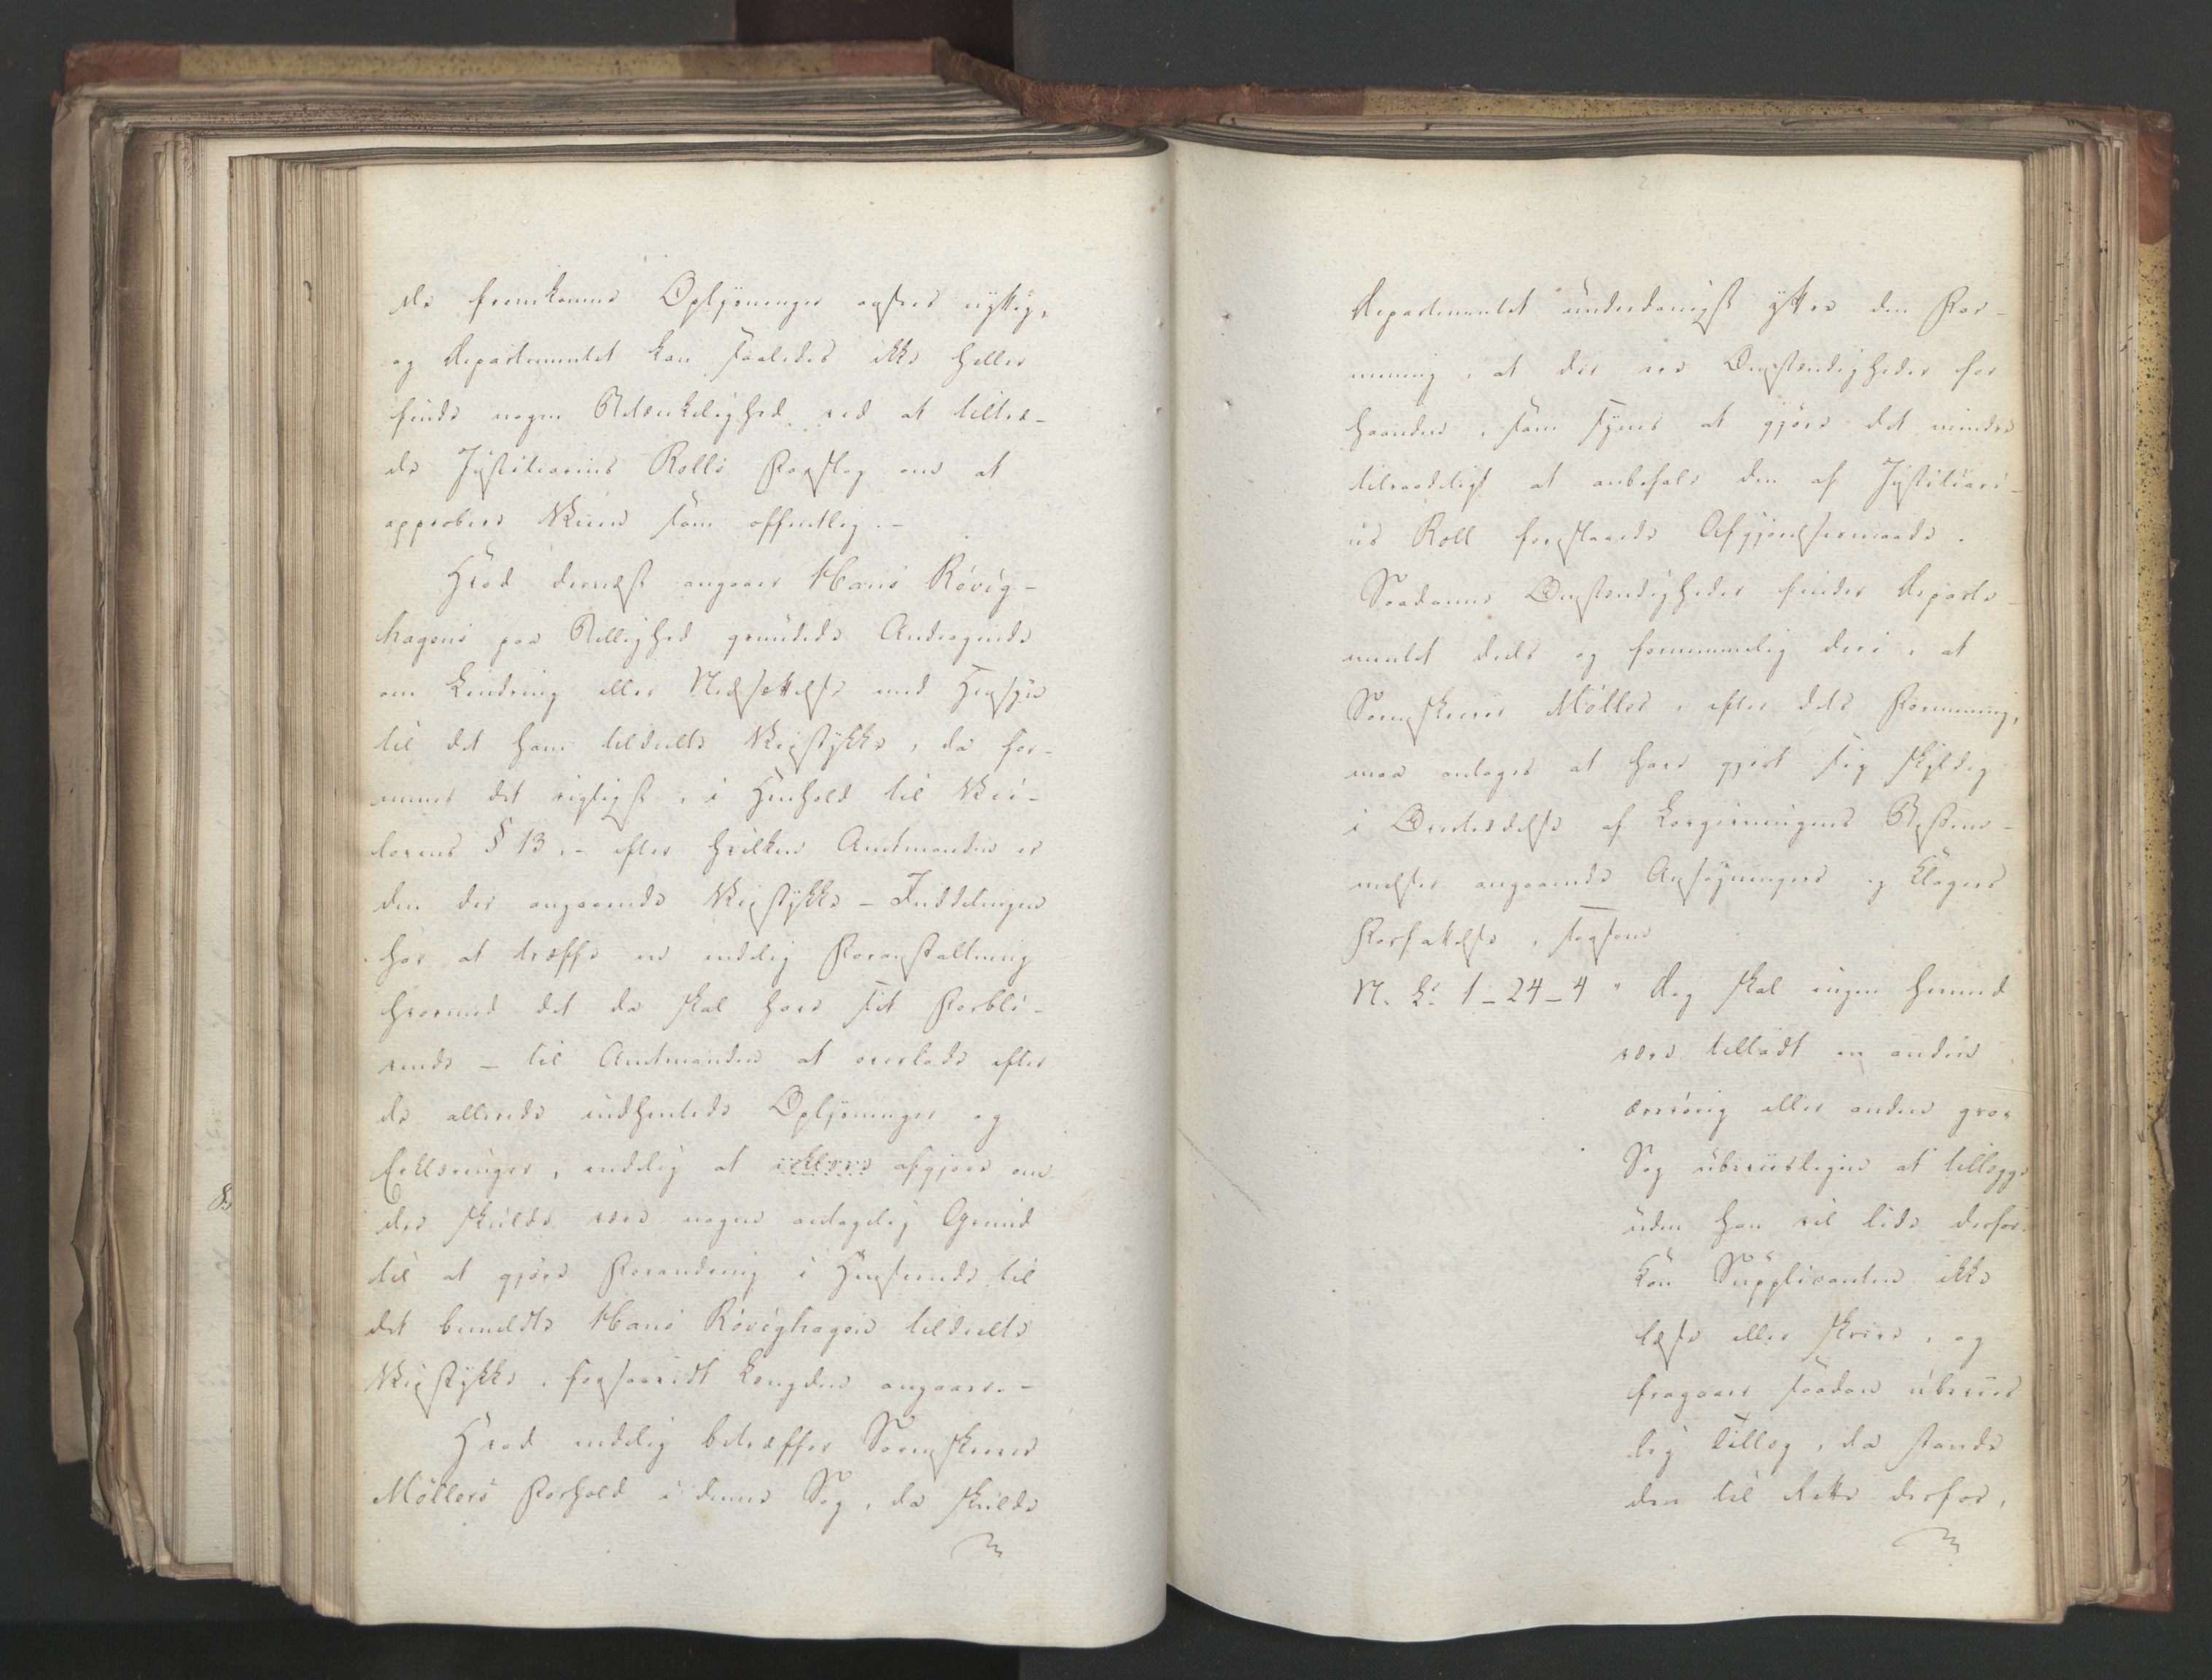 de fremkomne Oplysninger ansees nyttig,
og Departementet kan saaledes ikke heller
finde nogen Betænkelighed ved at tiltræ-
de Justitiarius Rolls Forslag om at
approbere Veien som offentlig.-
Hvad dernæst angaaer Hans Rövig-
hagens paa Billighed grundede Andragende
om Lindring eller Nedsættelse med Hensyn
til det ham tildeelte Veistykke, da for-
menes det rigtigst, i Henhold til Vei-
lovens § 13.- efter hvilken Amtmanden er
den der angaaende Veistykke-Inddelingen
har at træffe en endelig Foranstaltning
hvormed det da skal have sit Forbli-
vende - til Amtmanden at overlade efter
de allerede indhentede Oplysninger og
Erklæringer, endelig at afgjøre om
der skulde være nogen antagelig Grund
til at gjøre Forandring i Henseende til
det bemeldte Hans Rövighagen tildeelte
Veistykke, forsaavidt Længden angaaer.-
Hvad endelig betræffer Sorenskriver
Möllers Forhold i denne Sag, da skulde
Departementet underdanigst yttre den For-
mening, at der ere Omstændigheder for
haanden, som synes at gjøre det mindre
tilraadeligt at anbefale den af Justitiari-
us Roll foreslaaede Afgjørelsesmaade.
Saadanne Omstændigheder finder Departe-
mentet deels og fornemmelig deri, at
Sorenskriver Möller, efter dets Formening,
maa antages at have gjort sig skyldig
i Overtrædelse af Lovgivningens Bestem-
melser angaaende Ansøgningers og Klagers
Forfattelse, saasom
N. L. 1-24-4 " Dog skal ingen hermed
være tilladt en anden
ærrörig eller anden grov
Sag ubeviisligen at tillægge
uden han vil lide derfor.
Kan Supplicanten ikke
læse eller skrive, og
fragaaer saadan ubeviis
lig Tillæg, da stande
den til Rette derfor,